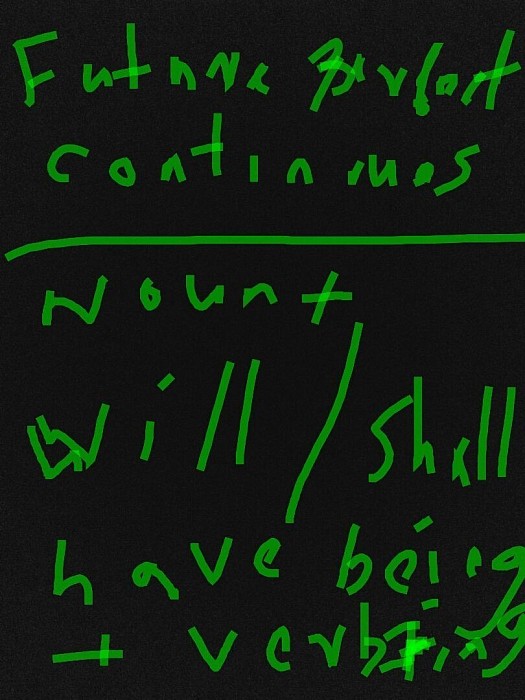 Future Perfect
Continuous
Noun +
will / shall
have being
+ verb+ing